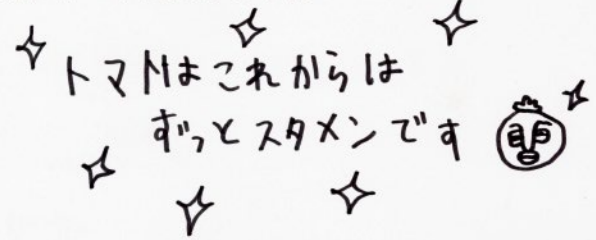 トマトはこれからは
ずっとスタメンです